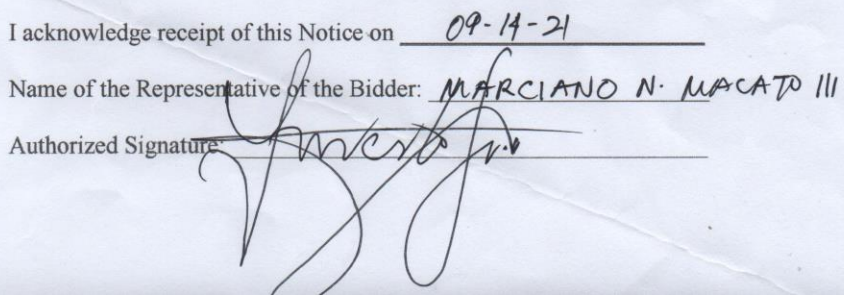 I acknowledge receipt of this Notice on 09-14-21
Name of the Representative of the Bidder: MARCIANO N. MACATO III
Authorized Signature: